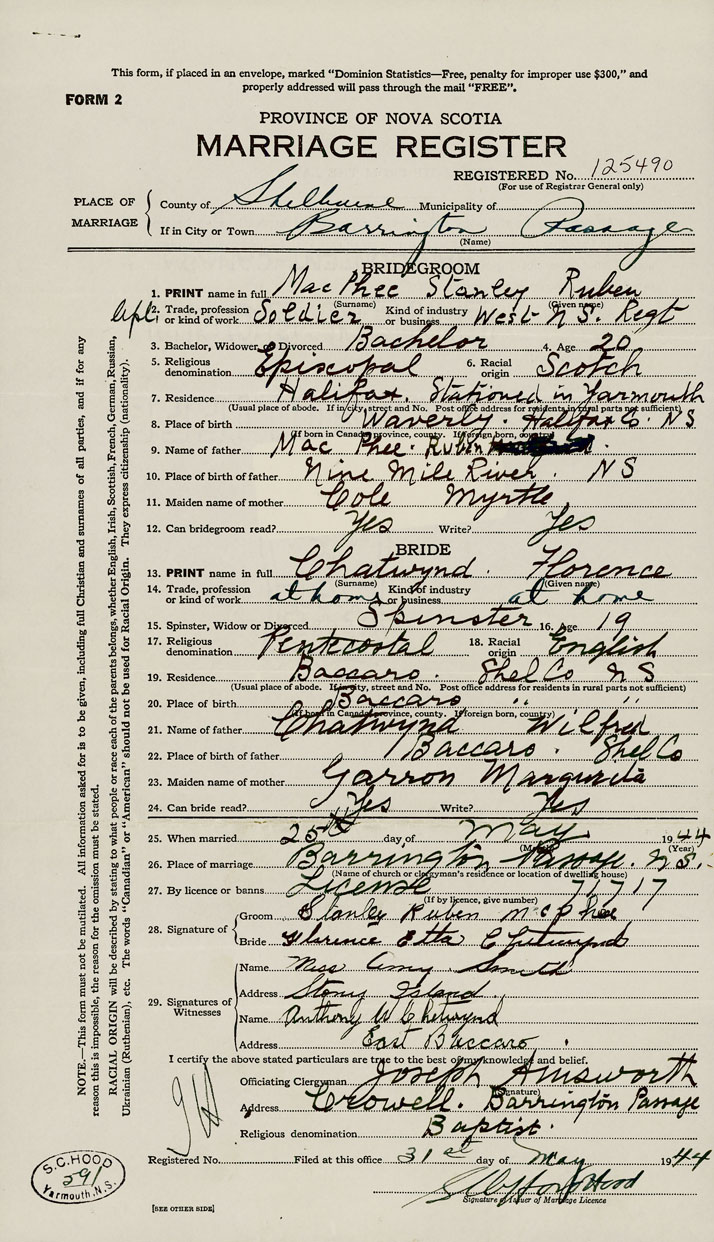 This form, if placed in an envelope, marked "Dominion Statistics—Free, penalty for improper use $300," and
properly addressed will pass through the mail "FREE".
FORM 2
PROVINCE OF NOVA SCOTIA
MARRIAGE REGISTER
REGISTERED No. 125490
(For use of Registrar General only)
PLACE OF MARRIAGE
County of Shelburne Municipality of
If in City or Town Barrington Passage
(Name)
BRIDEGROOM
1. PRINT name in full Mac Phee Stanley Ruben
(Surname) (Given name)
2. Trade, profession or kind of work Soldier Kind of industry or business West N.S. Regt
3. Bachelor, Widower or Divorced Bachelor 4. Age 20
5. Religious denomination Episcopal 6. Racial origin Scotch
7. Residence Halifax. Stationed in Yarmouth
(Usual place of abode. If in city, street and No. Post office address for residents in rural parts not sufficient)
8. Place of birth Waverly. Halifax Co. NS
(If born in Canada, province, county. If foreign born, country)
9. Name of father Mac Phee. Ruben
10. Place of birth of father Nine Mile River. NS
11. Maiden name of mother Cole Myrtle
12. Can bridegroom read? Yes Write? Yes
BRIDE
13. PRINT name in full Chatwynd. Florence
(Surname) (Given name)
14. Trade, profession or kind of work at home Kind of industry or business at home
15. Spinster, Widow or Divorced Spinster 16. Age 19
17. Religious denomination Pentecostal 18. Racial origin English
19. Residence Baccaro. Shel Co N S
(Usual place of abode. If in city, street and No. Post office address for residents in rural parts not sufficient)
20. Place of birth Baccaro " "
(If born in Canada, province, county. If foreign born, country)
21. Name of father Chatwynd Wilfred
22. Place of birth of father Baccaro. Shel Co
23. Maiden name of mother Garron Margurita
24. Can bride read? Yes Write? Yes
25. When married 25th day of May 1944
(Month) (Year)
26. Place of marriage Barrington Passage. N.S.
(Name of church or clergyman's residence or location of dwelling house)
27. By licence or banns License 71717
(If by licence, give number)
28. Signature of
Groom Stanley Ruben McPhee
Bride Florence Etta Chetwynd
29. Signatures of Witnesses
Name Miss Amy Smith
Address Stony Island
Name Anthony W Chetwynd
Address East Baccaro.
I certify the above stated particulars are true to the best of my knowledge and belief.
Officiating Clergyman Joseph Ainsworth
(Signature)
Address Crowell. Barrington Passage
Religious denomination Baptist.
Registered No. Filed at this office 31st day of May 1944
Clifford Hood
Signature of Issuer of Marriage Licence
[SEE OTHER SIDE]
S.C. HOOD
291
Yarmouth, N.S.
NOTE.—This form must not be mutilated. All information asked for is to be given, including full Christian and surnames of all parties, and if for any
reason this is impossible, the reason for the omission must be stated.
RACIAL ORIGIN will be described by stating to what people or race each of the parents belongs, whether English, Irish, Scottish, French, German, Russian,
Ukrainian (Ruthenian), etc. The words "Canadian" or "American" should not be used for Racial Origin. They express citizenship (nationality).